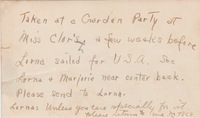 Taken at a Garden Party at
Miss Clar's, a few weeks before
Lorna sailed for U.S.A. See
Lorna & Marjorie near center back.
Please send to Lorna.
Lornas Unless you care especially for it
please return to me